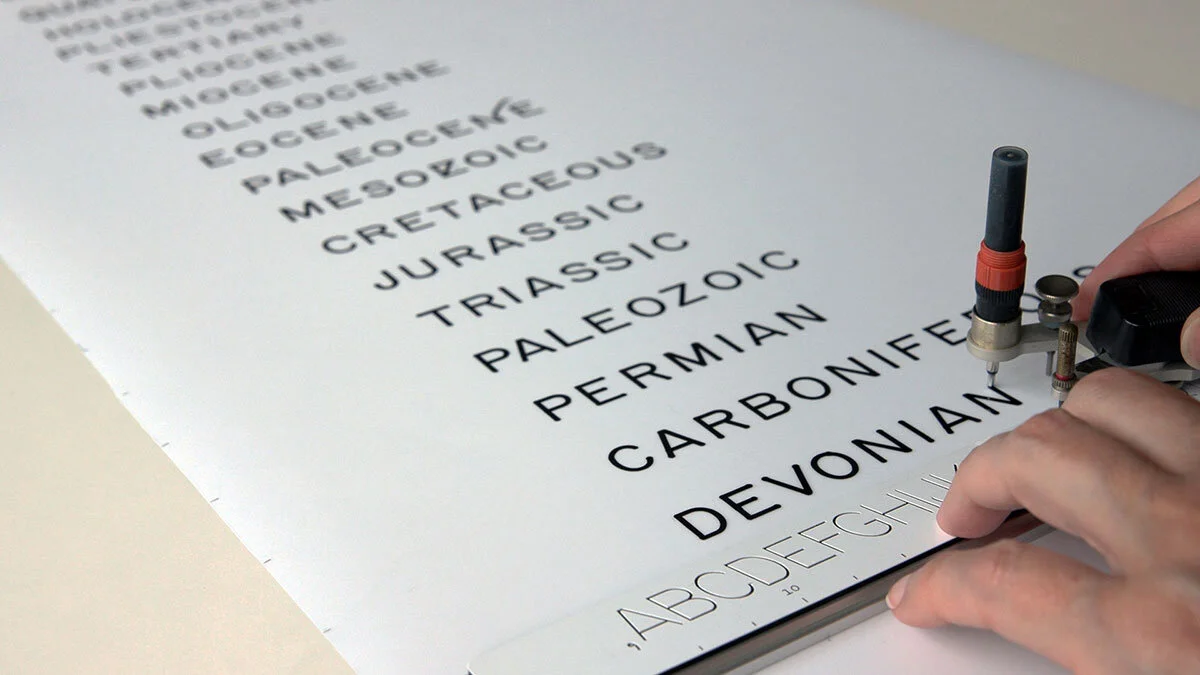 HOLOCENE
PLIESTOCENE
TERTIARY
PLIOCENE
MIOCENE
OLIGOCENE
EOCENE
PALEOCENE
MESOZOIC
CRETACEOUS
JURASSIC
TRIASSIC
PALEOZOIC
PERMIAN
CARBONIFEROUS
DEVONIAN
,ABCDEFGHIJK
10